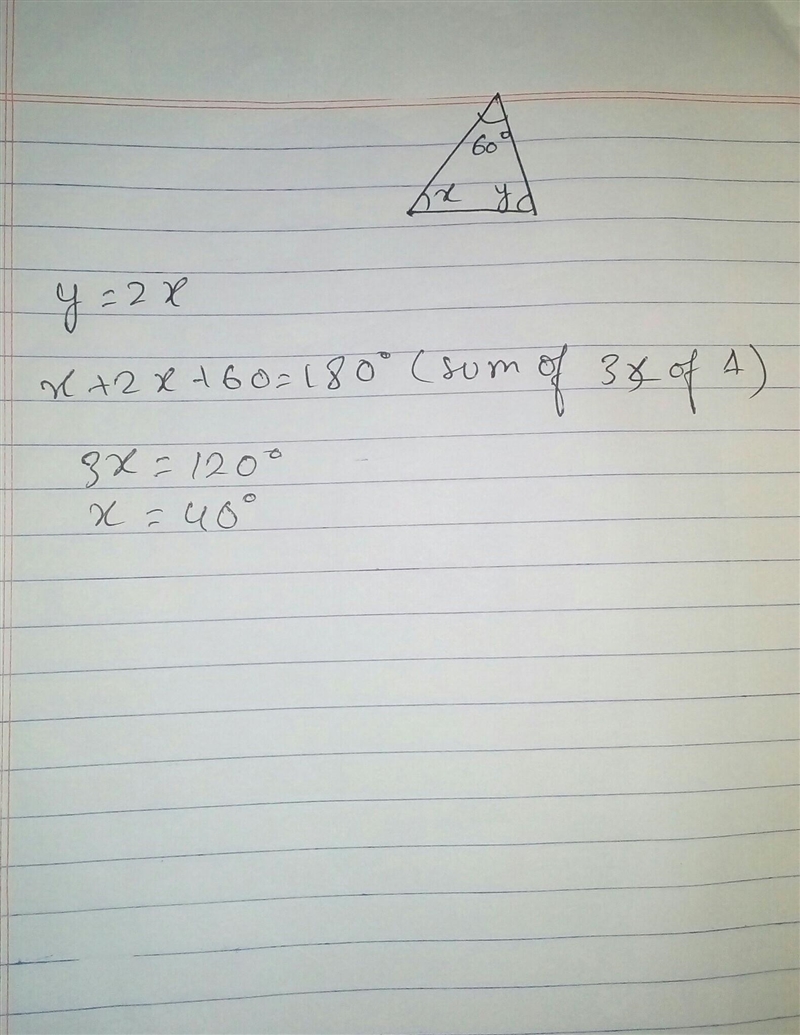 60°
x y
y = 2x
x + 2x + 60 = 180° (sum of 3∠ of Δ)
3x = 120°
x = 40°